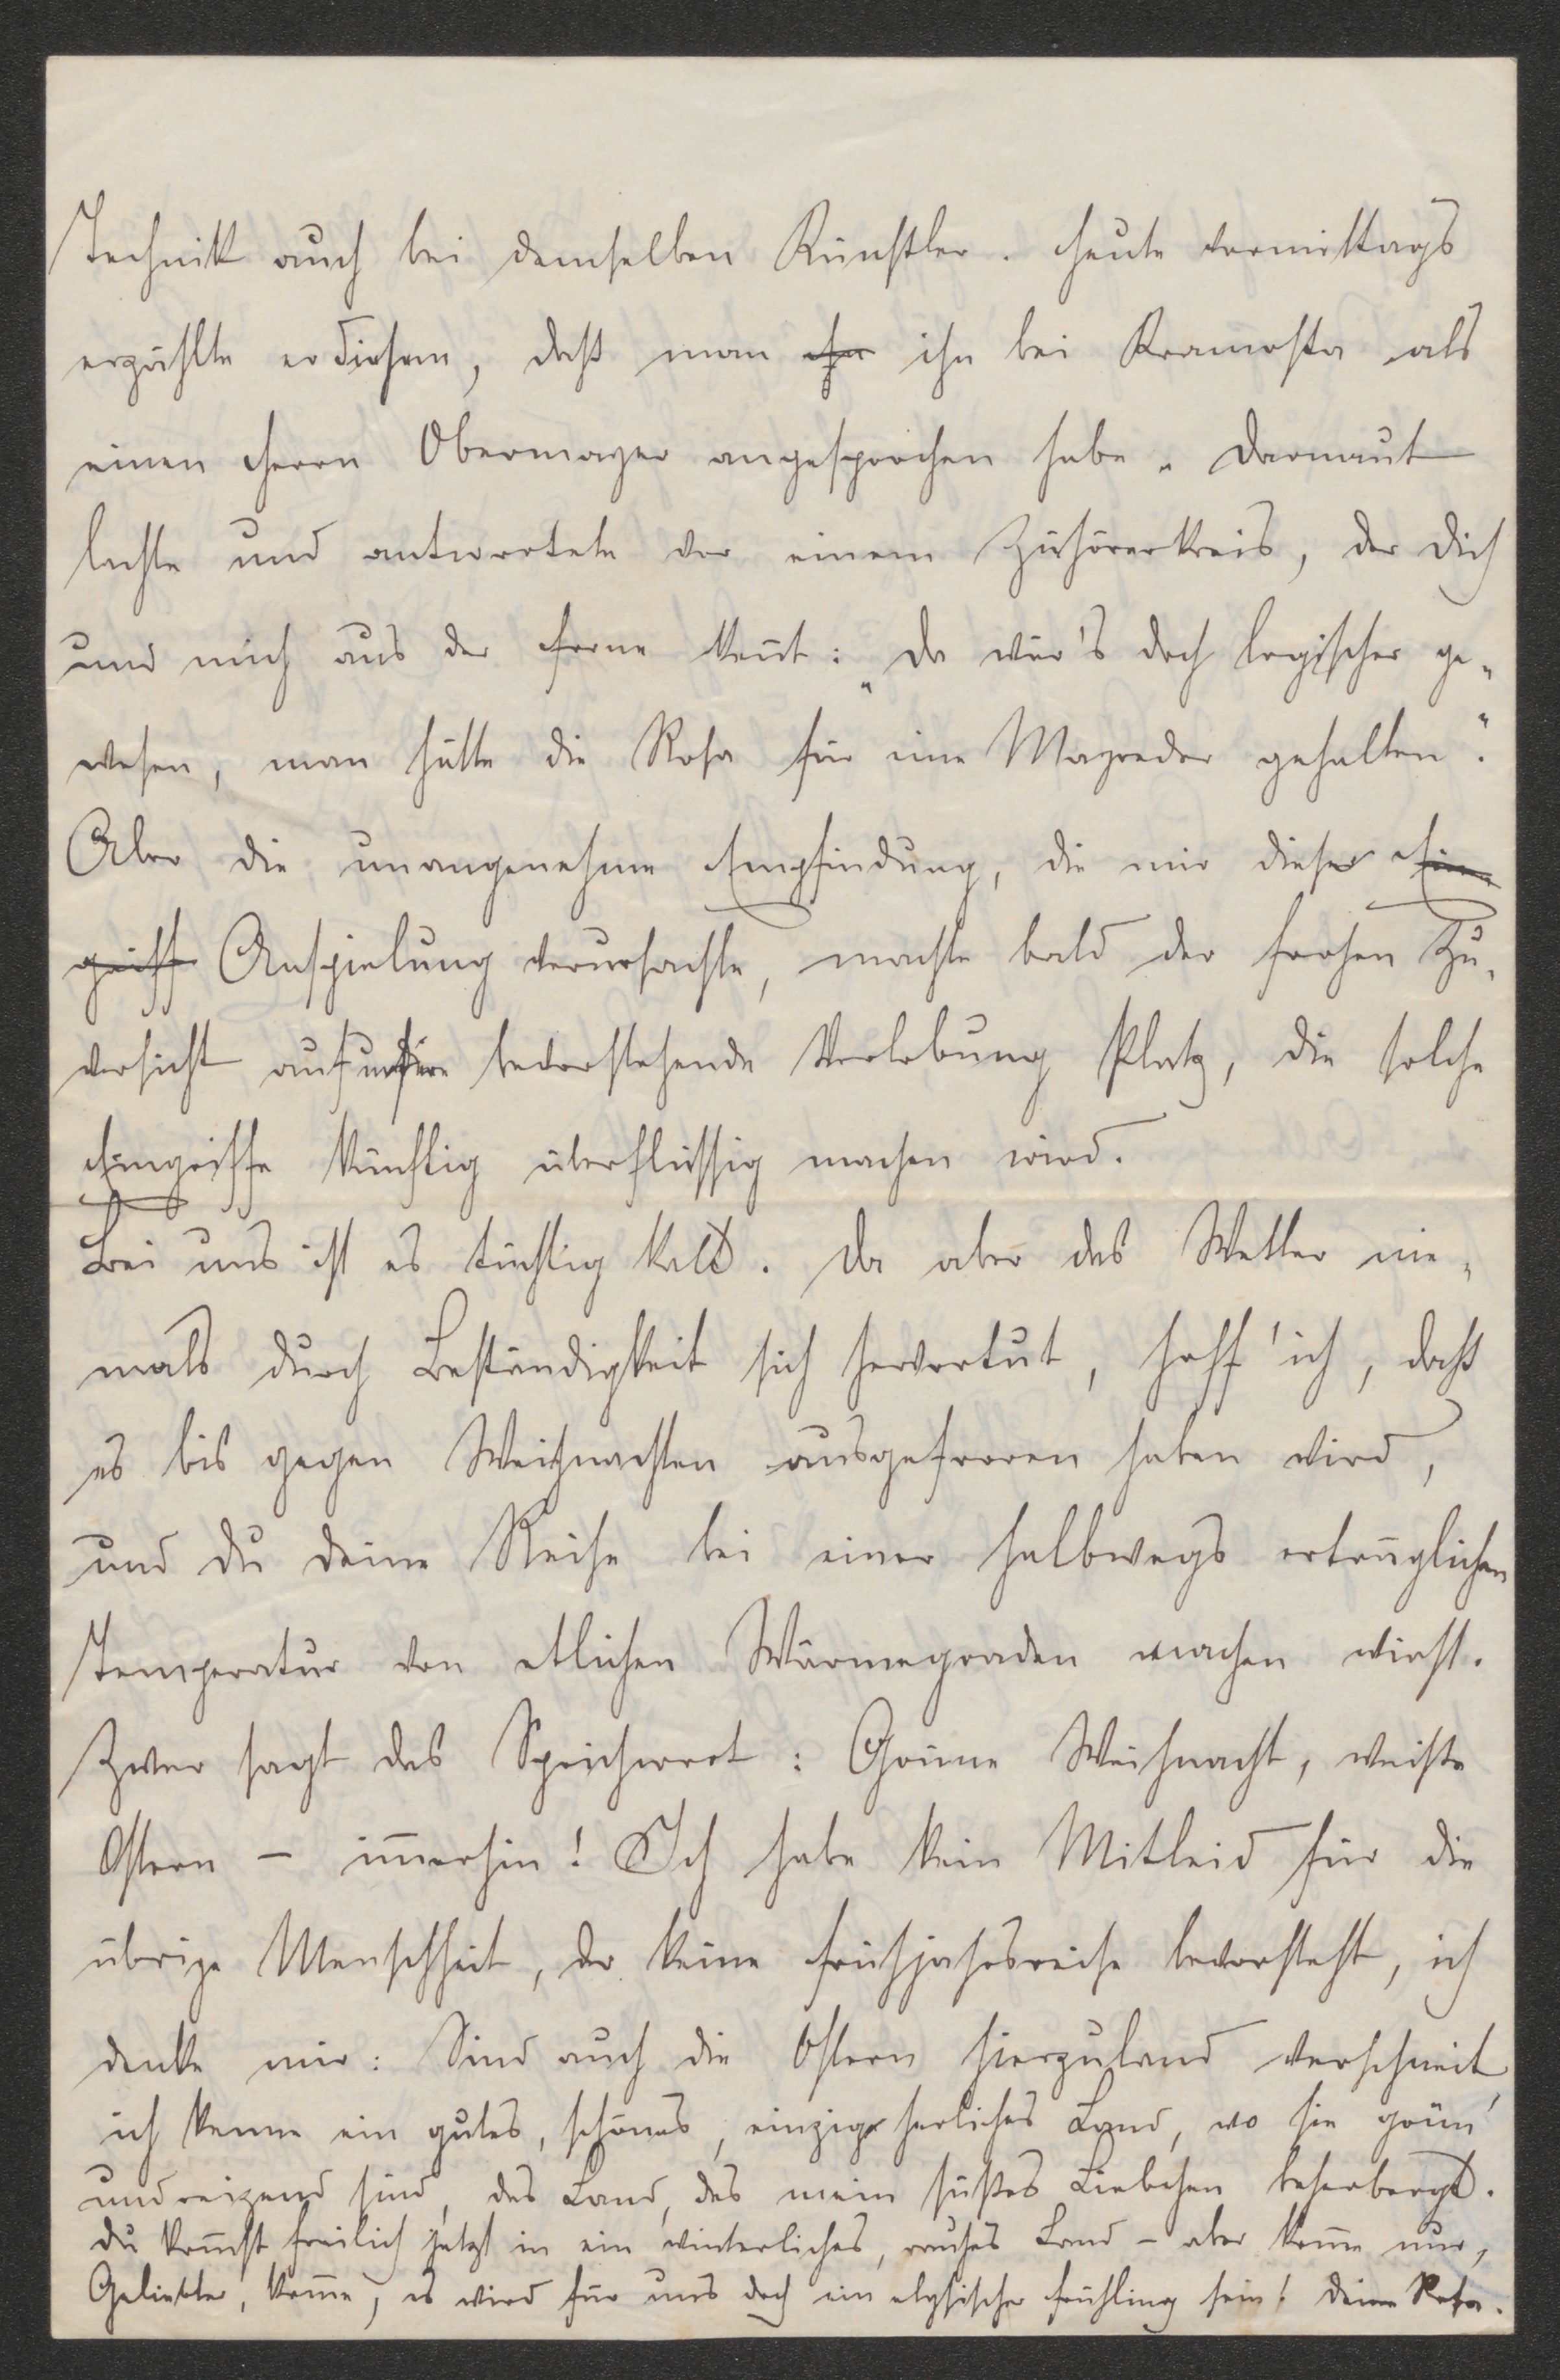 Technik auch bei demselben Künstler. Heute vormittags
erzählte er diesem, daß man ihn bei Kramosta als
einen Herrn Obermayer angesprochen habe. Darnaut
lachte und antwortete vor einem Zuhörerkreis, der Dich
und mich aus der Ferne keñt: „Da wär's doch logischer ge-
wesen, man hätte die Rosa für eine Mayreder gehalten."
Aber die unangenehme Empfindung, die mir dieser Ein-
griff Anspielung verursachte, machte bald der frohen Zu-
versicht auf unsere bevorstehende Verlobung Platz, die solche
Eingriffe künftig überflüssig machen wird.
Bei uns ist es tüchtig kalt. Da aber das Wetter nie-
mals durch Beständigkeit sich hervortut, hoff' ich, daß
es bis gegen Weihnachten ausgefroren haben wird,
und Du Deine Reise bei einer halbwegs erträglichen
Temperatur von etlichen Wärmegraden machen wirst.
Zwar sagt das Sprichwort: Grüne Weihnacht, weiße
Ostern – im̃erhin! Ich habe kein Mitleid für die
übrige Menschheit, der keine Frühjahrsreise bevorsteht, ich
denke mir: Sind auch die Ostern hierzuland verschneit,
ich kenne ein gutes, schönes, einzig herliches Land, wo sie grün
und reizend sind, das Land, das mein süßes Liebchen beherbergt.
Du kom̃st freilich jetzt in ein winterliches, rauhes Land – aber kom̃e nur,
Geliebter, kom̃e, es wird für uns doch ein elysischer Frühling sein! Deine Rosa.